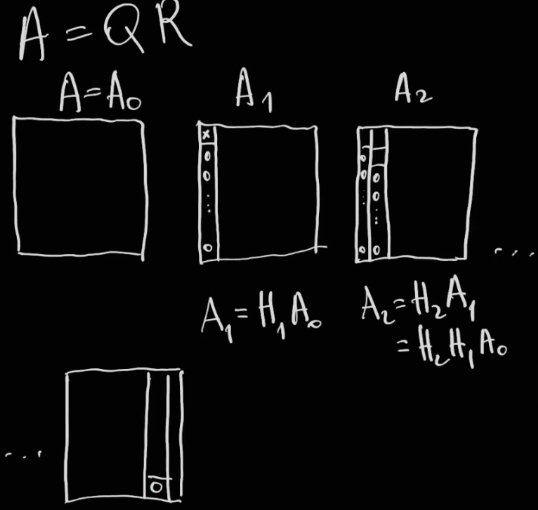 A = QR
A=A₀ A₁ A₂
x
0 0
0 0 0
⋮ 0
⋮
0 0 0
...
A₁=H₁A₀ A₂=H₂A₁
=H₂H₁A₀
...
0